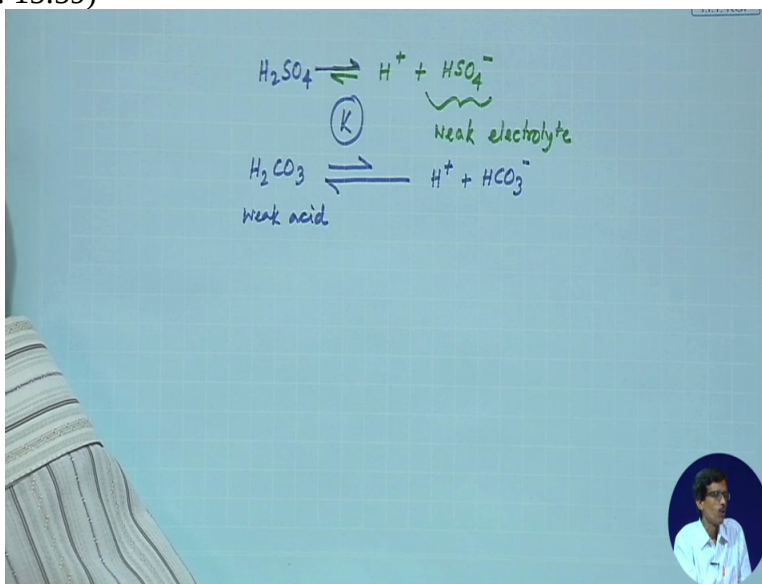 15:59)
I.I.T. KGP
H₂SO₄ ⇌ H⁺ + HSO₄⁻
K
weak electrolyte
H₂CO₃ ⇌ H⁺ + HCO₃⁻
weak acid